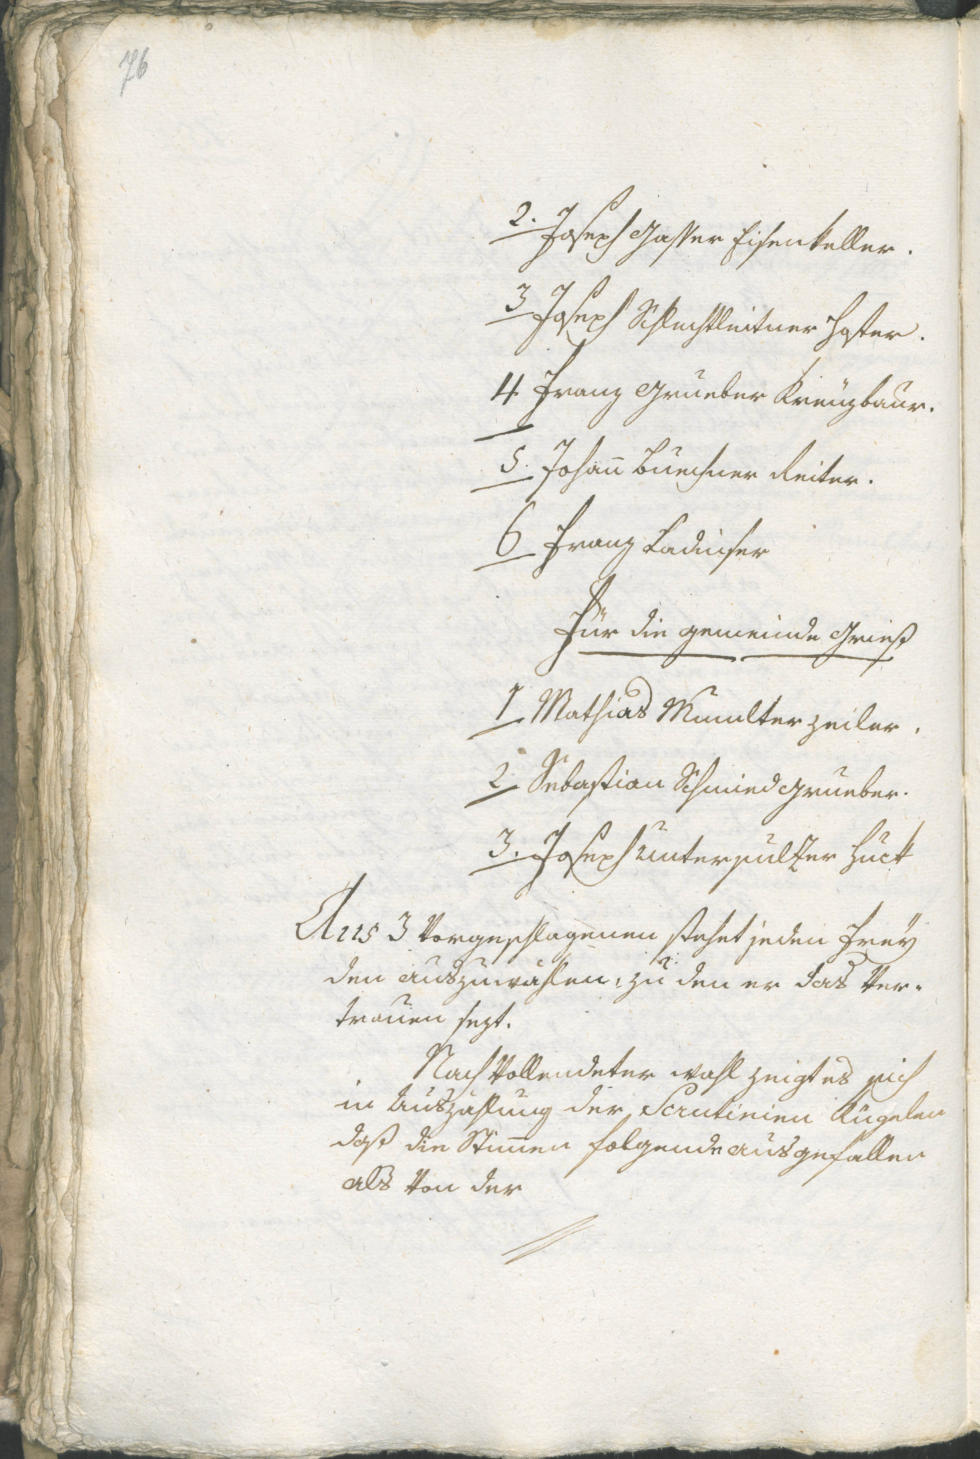 76
2. Joseph Gasser Eisenkeller.
3 Joseph Schlechtleitner Hoster.
4 Franz Grueber Kreuzbaur.
5. Johann Buechner Reiter.
6 Franz Ladinser
Für die gemeinde Grieß
1 Mathias Mumelter zeiler.
2 Sebastian Schmied Grueber.
3. Joseph Unterpulzer Huck
Aus 3 Vorgeschlagenen stehet jeden frey
den auszuwählen, zu den er das Ver-
trauen sezt.
Nach Vollendeter wahl zeigt es sich
in Auszählung der Scrutinien Kügelen
daß die Stimmen folgende ausgefallen
als Von der